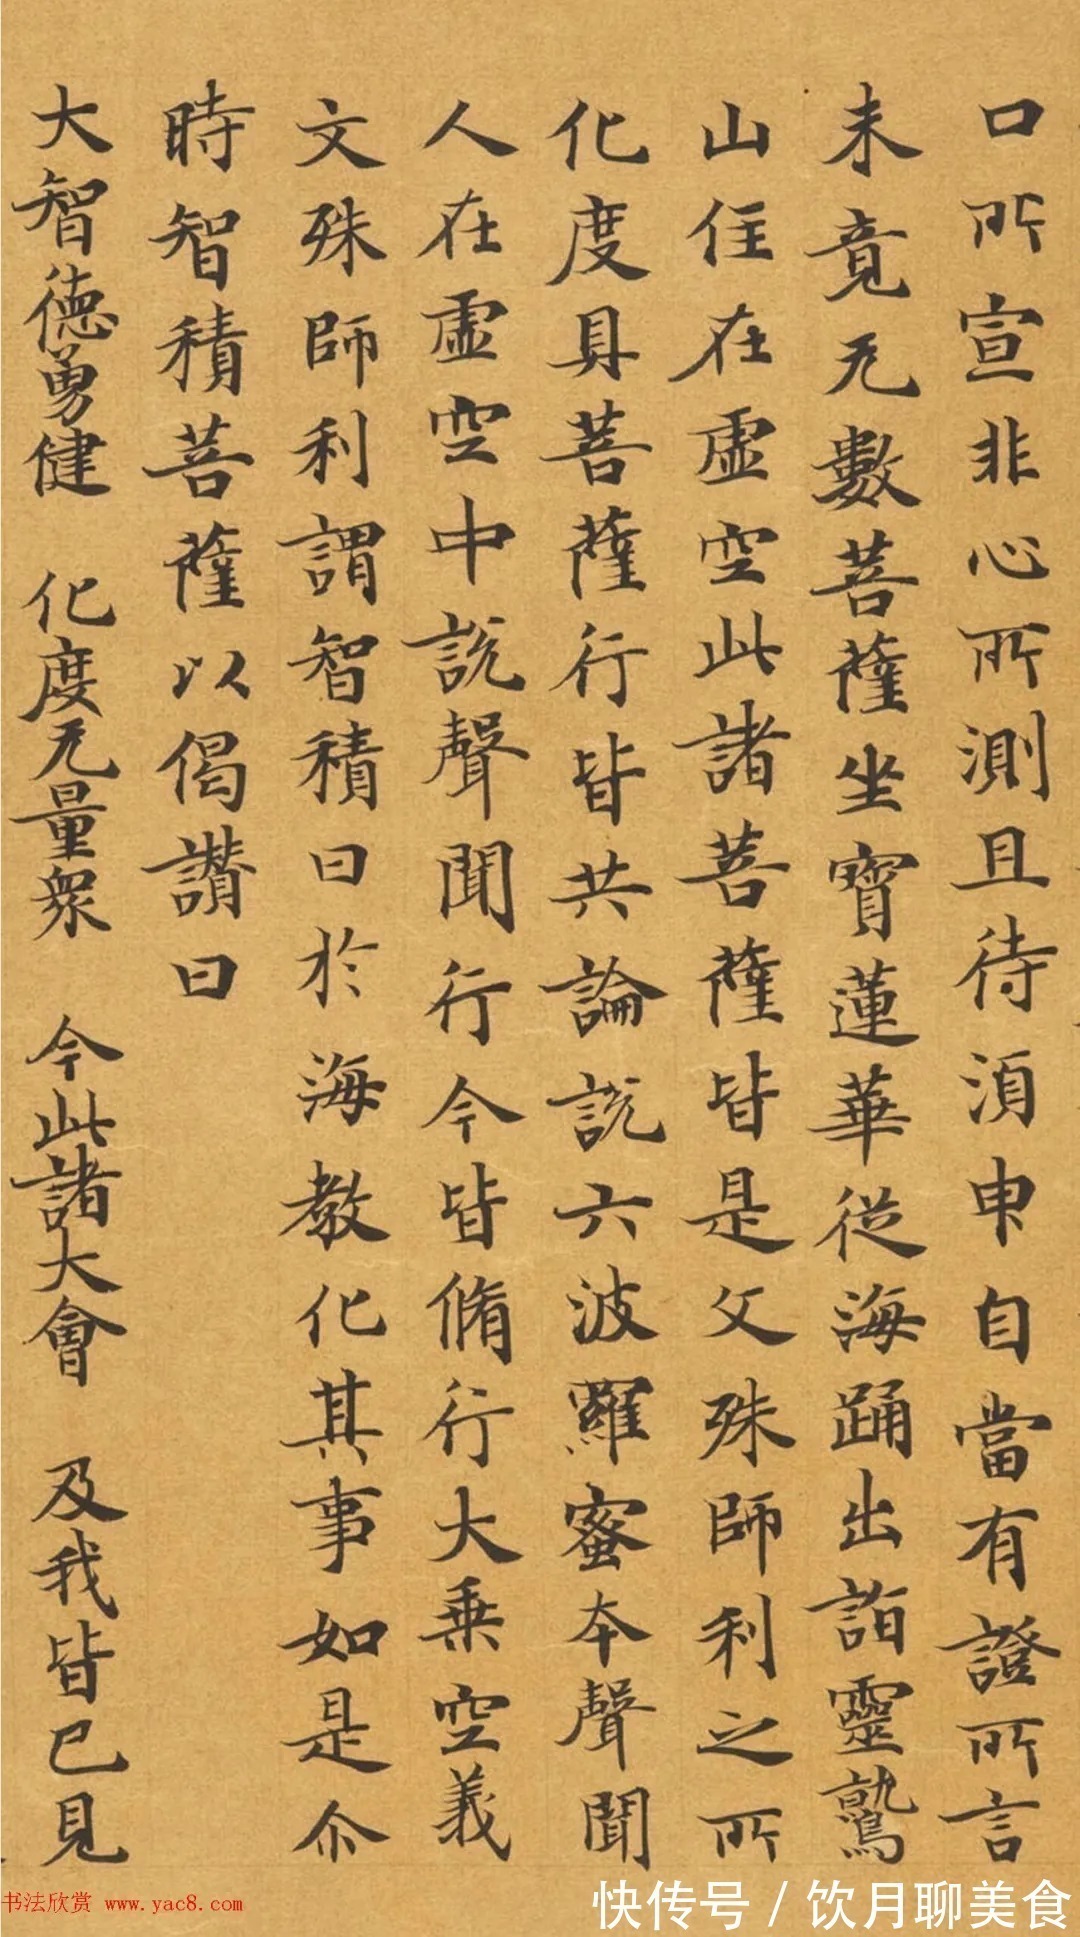 口所宣非心所測且待湏申自當有證所言
未竟无數菩薩坐寶蓮華從海踊出詣靈鷲
山住在虛空此諸菩薩皆是文殊師利之所
化度具菩薩行皆共論說六波羅蜜本聲聞
人在虛空中說聲聞行今皆脩行大乗空義
文殊師利謂智積曰於海教化其事如是尒
時智積菩薩以偈讚曰
大智德勇健 化度无量衆 今此諸大會 及我皆已見
书法欣赏 www.yac8.com
快传号 / 饮月聊美食